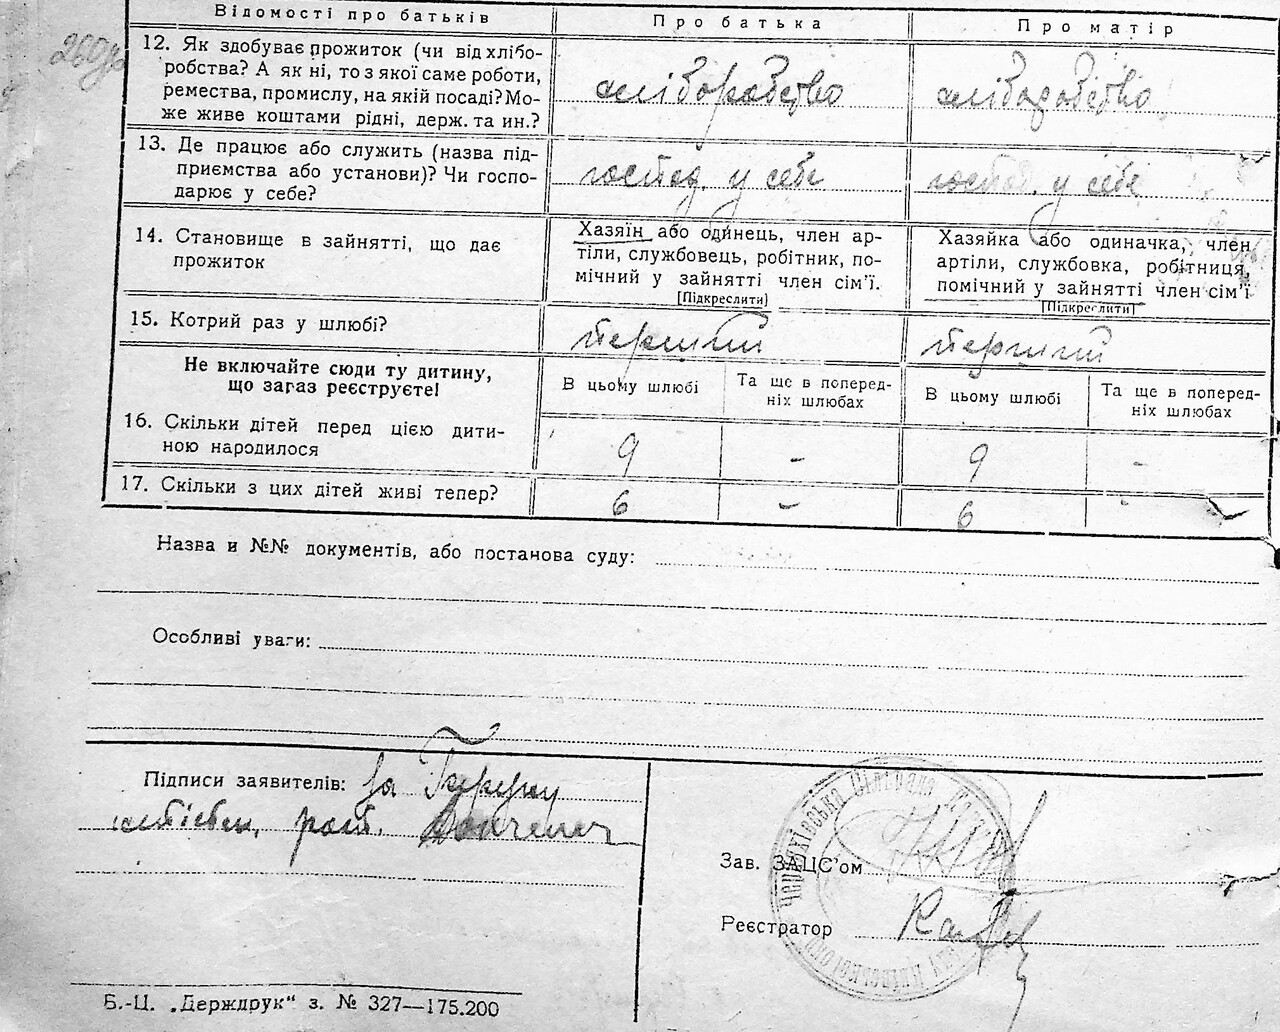 260зв
Відомості про батьків
Про батька
Про матір
12. Як здобуває прожиток (чи від хлібо-
робства? А як ні, то з якої саме роботи,
ремества, промислу, на якій посаді? Мо-
же живе коштами рідні, держ. та ин.?
хліборобство
хліборобство
13. Де працює або служить (назва під-
приємства або установи)? Чи госпо-
дарює у себе?
господ. у себе
господ. у себе
14. Становище в зайнятті, що дає
прожиток
Хазяїн або одинець, член ар-
тіли, службовець, робітник, по-
мічний у зайнятті член сім'ї.
[Підкреслити]
Хазяйка або одиначка, член
артіли, службовка, робітниця,
помічний у зайнятті член сім'ї
[Підкреслити]
15. Котрий раз у шлюбі?
перший
перший
Не включайте сюди ту дитину,
що зараз реєструєте!
В цьому шлюбі
Та ще в поперед-
ніх шлюбах
В цьому шлюбі
Та ще в поперед-
ніх шлюбах
16. Скільки дітей перед цією дити-
ною народилося
9
-
9
-
17. Скільки з цих дітей живі тепер?
6
-
6
-
Назва и №№ документів, або постанова суду:
Особливі уваги:
Підписи заявителів: за
Зав. ЗАЦС'ом
Реєстратор
Черняхівська Сільська
Київської окр
Б.-Ц. „Держдрук“ з. № 327—175.200